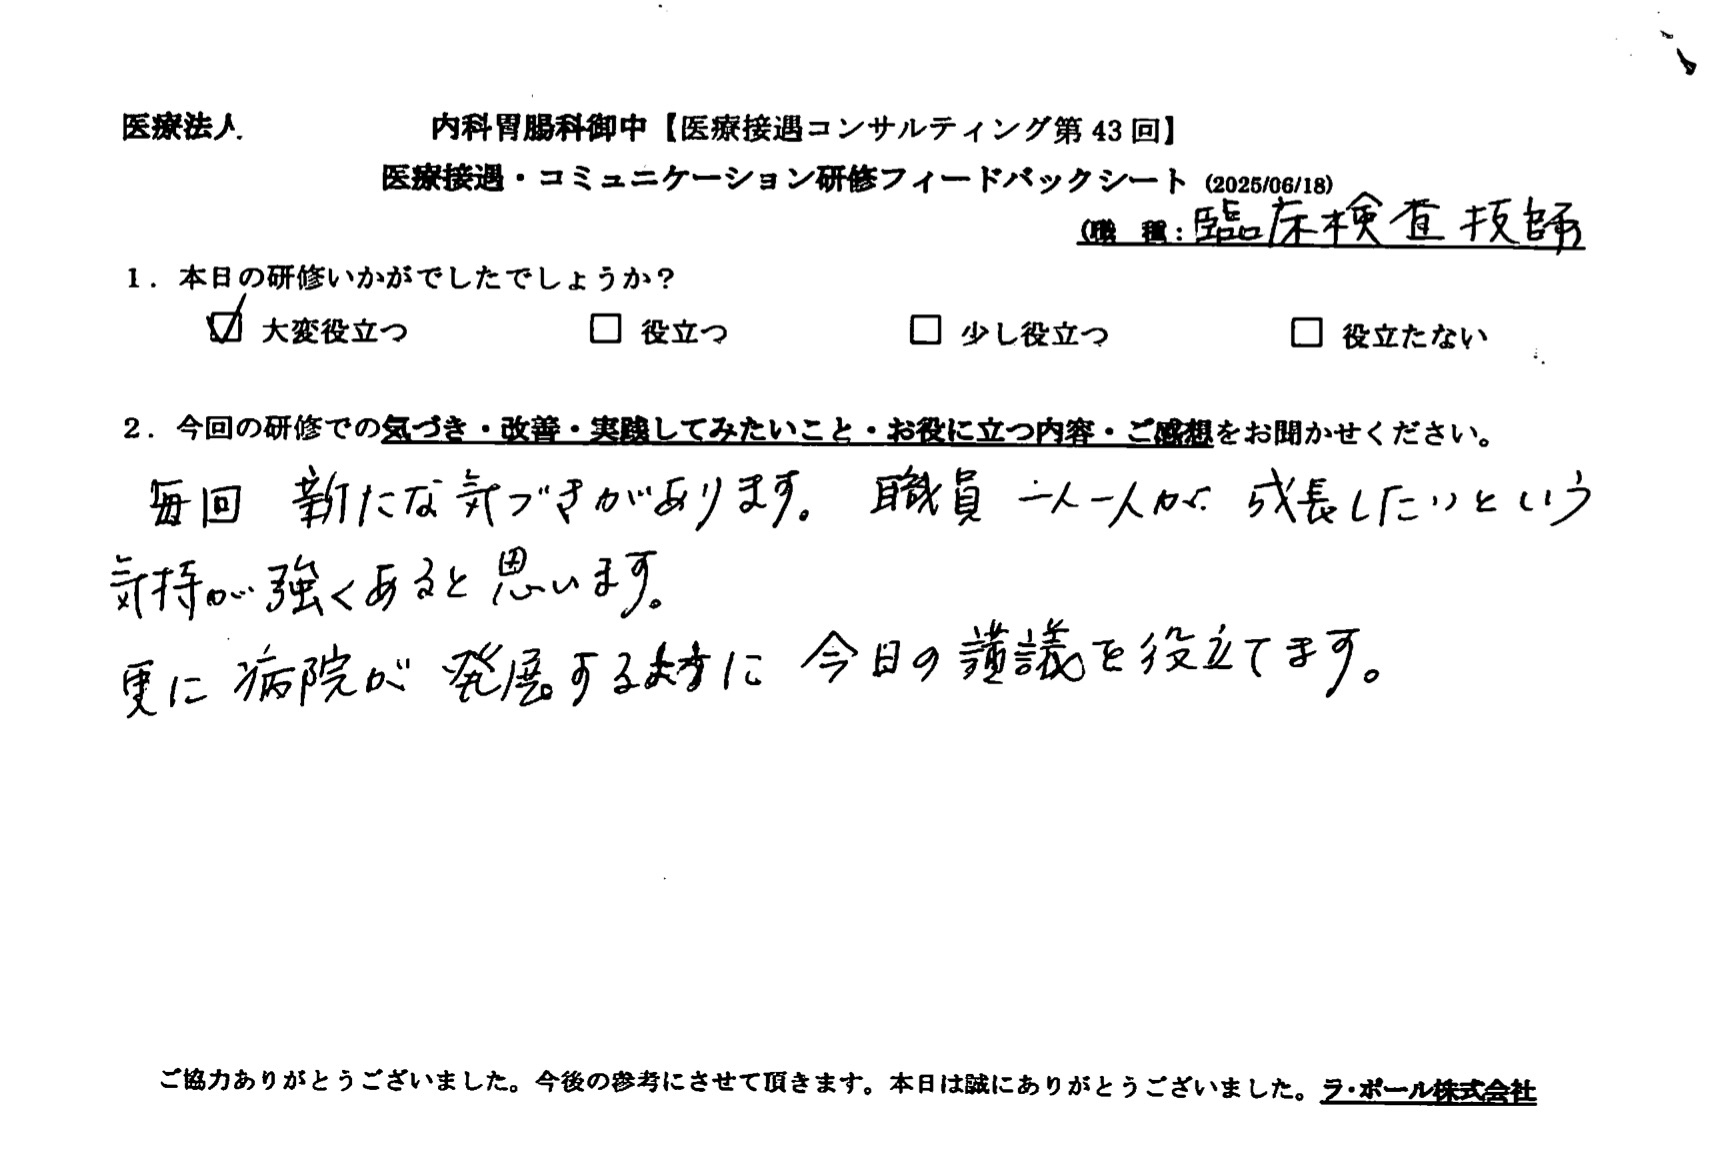 医療法人 内科胃腸科御中【医療接遇コンサルティング第 43 回】
医療接遇・コミュニケーション研修フィードバックシート (2025/06/18)
(職 種:臨床検査技師
1. 本日の研修いかがでしたでしょうか?
☑ 大変役立つ □ 役立つ □ 少し役立つ □ 役立たない
2. 今回の研修での気づき・改善・実践してみたいこと・お役に立つ内容・ご感想をお聞かせください。
毎回 新たな気づきがあります。 職員 一人一人が 成長したいという
気持が強くあると思います。
更に病院が発展する に 今日の 議を役立てます。
ご協力ありがとうございました。今後の参考にさせて頂きます。本日は誠にありがとうございました。ラ・ポール株式会社